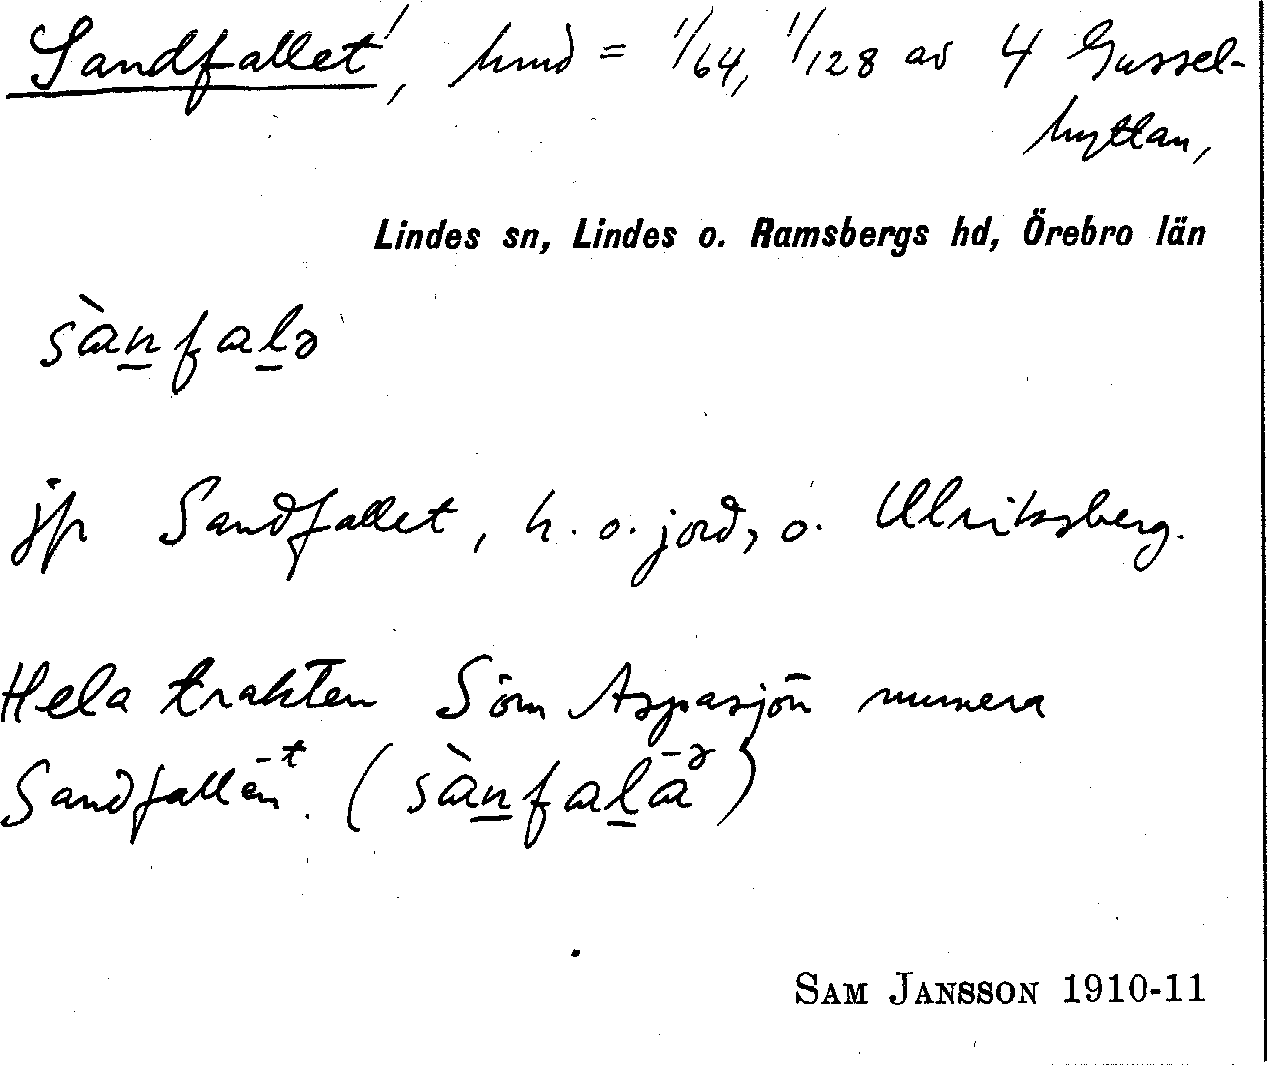 Sandfallet, hmd = 1/64, 1/128 av 4 Gussel-
hyttan,
Lindes sn, Lindes o. Ramsbergs hd, Örebro län
sànfalə
jfr Sandfallet, h. o. jord, o. Ulriksberg.
Hela trakten S om Aspasjön numera
Sandfallet. (sànfala)
SAM JANSSON 1910-11